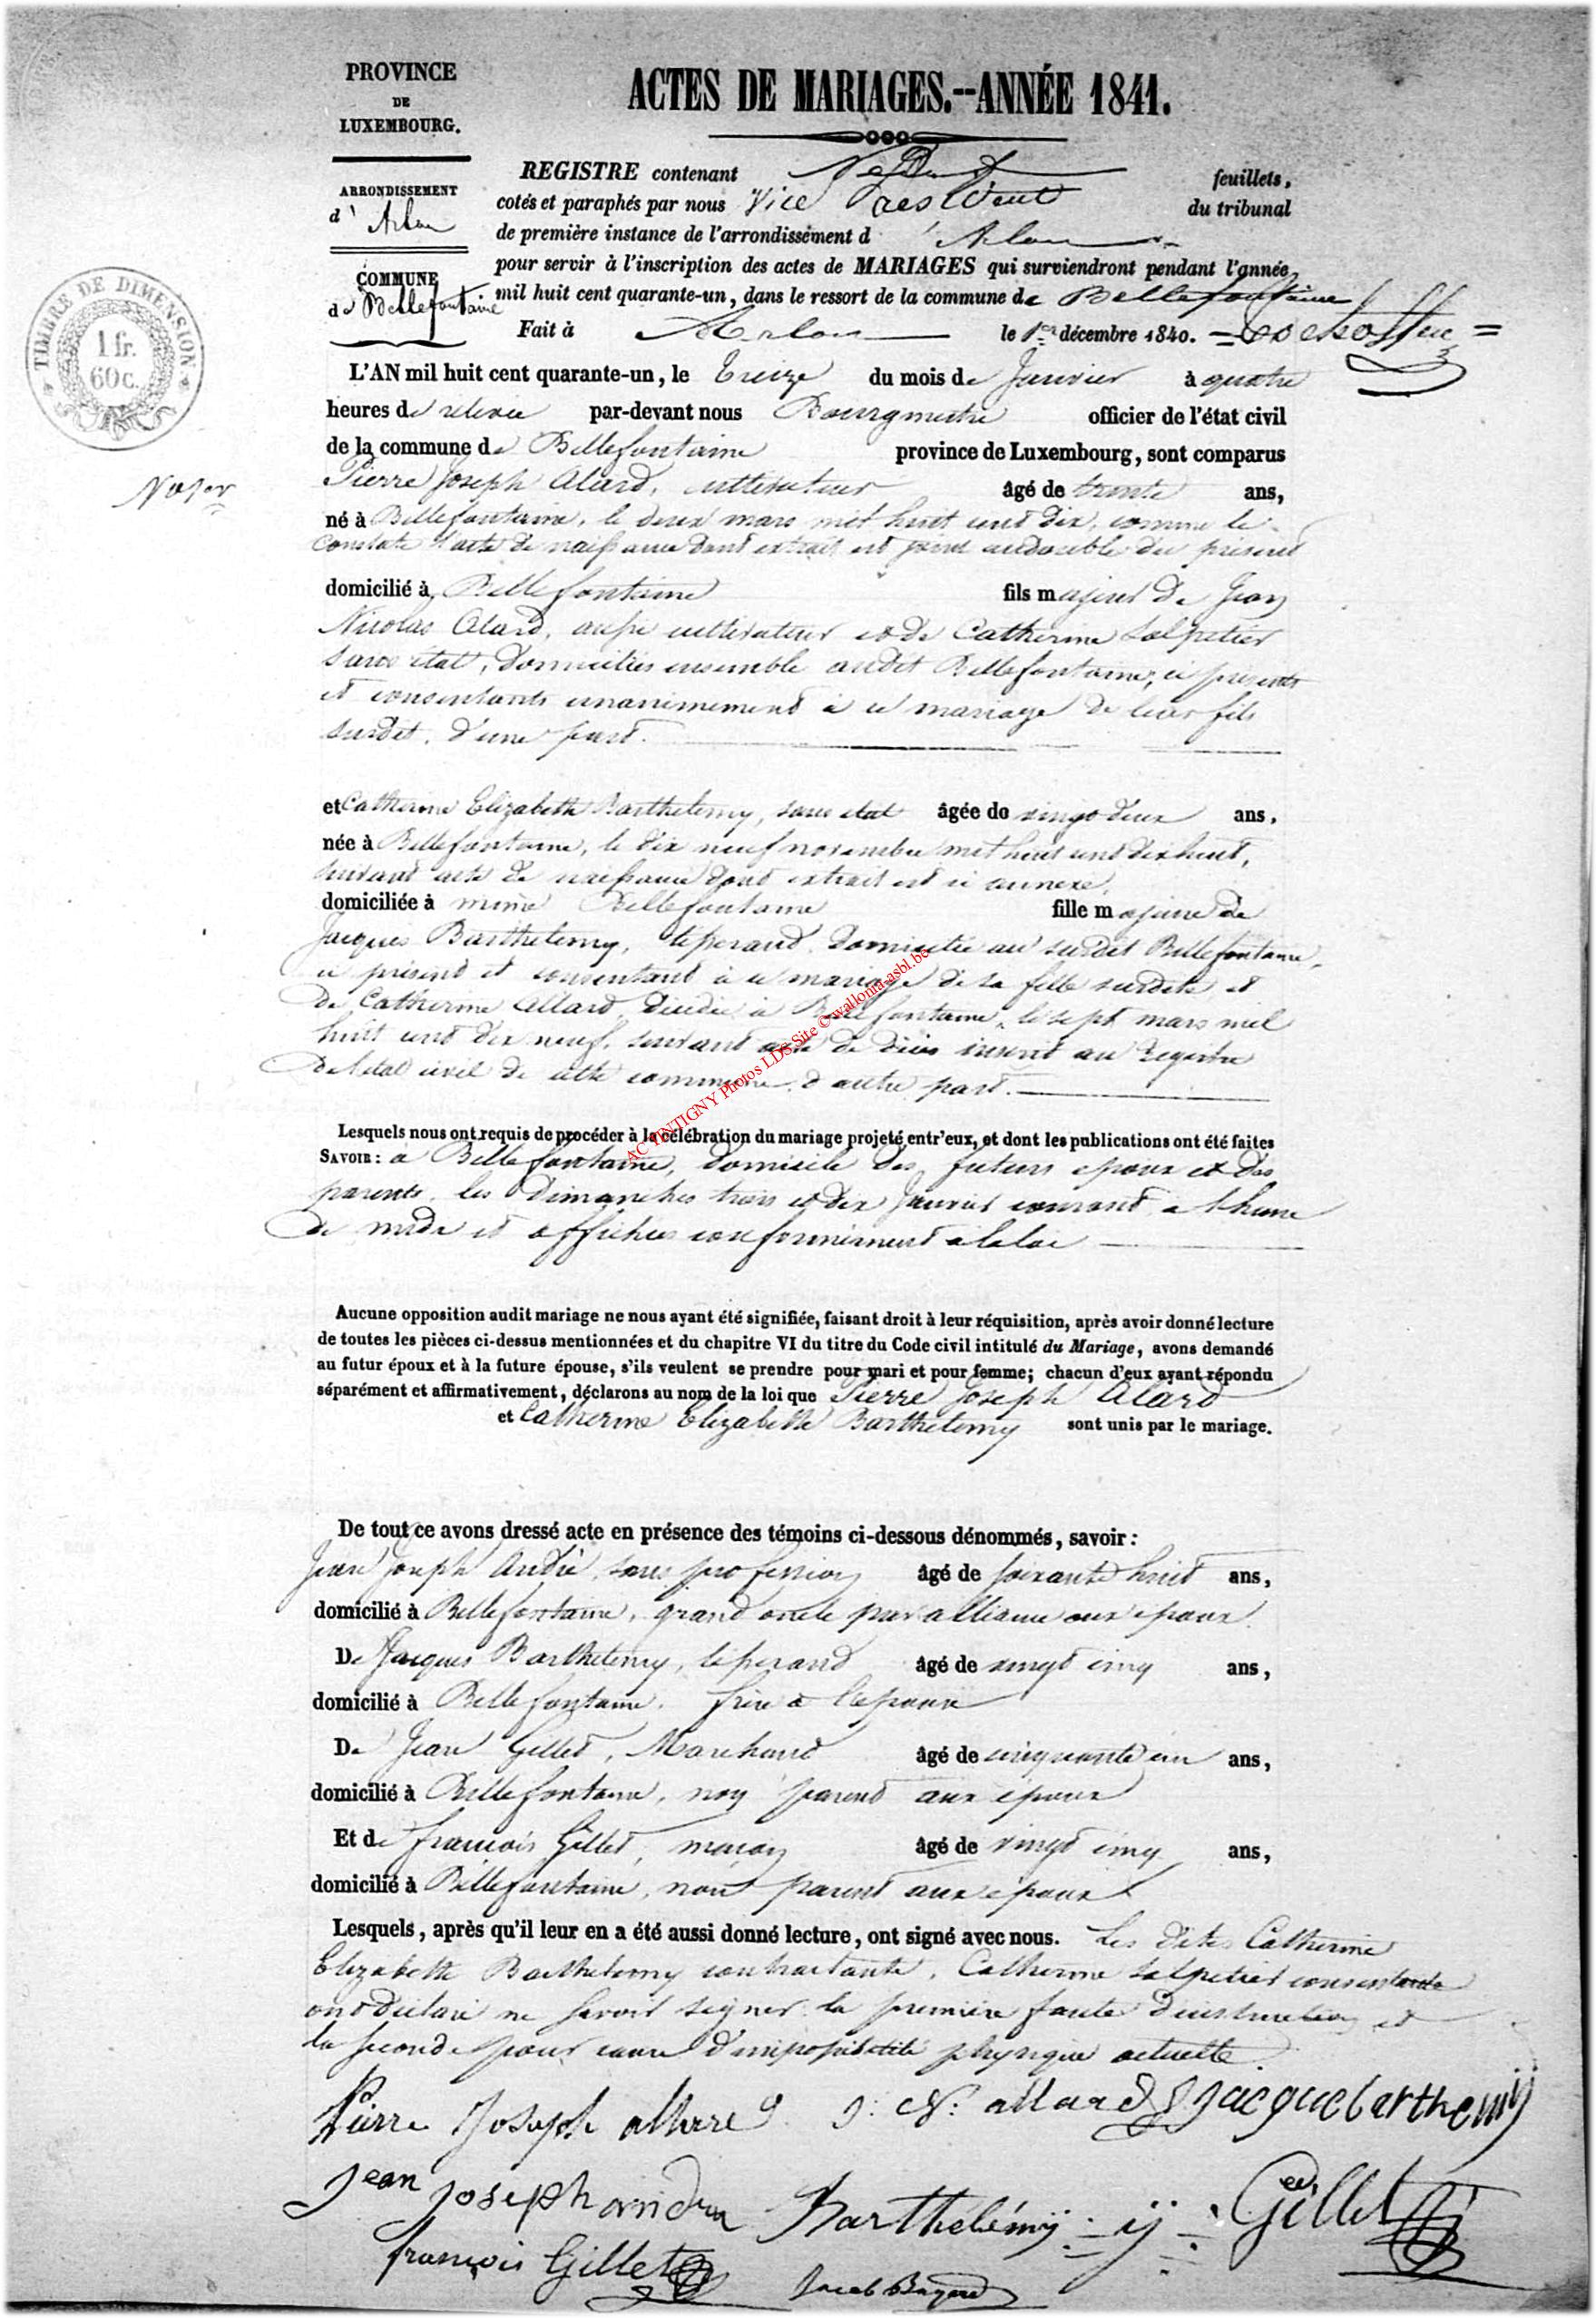 PROVINCE
DE
LUXEMBOURG.
ACTES DE MARIAGES.--ANNÉE 1841.
ARRONDISSEMENT
d' Arlon
COMMUNE
de Bellefontaine
TIMBRE DE DIMENSION
1 fr.
60 c.
REGISTRE contenant feuillets,
cotés et paraphés par nous Vice President du tribunal
de première instance de l'arrondissement d'Arlon
pour servir à l'inscription des actes de MARIAGES qui surviendront pendant l'année
mil huit cent quarante-un, dans le ressort de la commune de Bellefontaine
Fait à Arlon le 1er décembre 1840.
L'AN mil huit cent quarante-un, le treize du mois de Janvier à quatre
heures de relevée par-devant nous Bourgmestre officier de l'état civil
de la commune de Bellefontaine province de Luxembourg, sont comparus
Pierre Joseph Alard, cultivateur âgé de trente ans,
né à Bellefontaine, le deux mars mil huit cent dix, comme le
constate l'acte de naissance dont extrait est joint au double du présent
domicilié à Bellefontaine fils majeur de Jean
Nicolas Alard, aussi cultivateur et de Catherine Salpetier
sans état, domiciliés ensemble audit Bellefontaine, ci présents
et consentants unanimement à ce mariage de leur fils
susdit, d'une part.
et Catherine Elizabeth Barthelemy, sans état âgée de vingt deux ans,
née à Bellefontaine, le dix neuf novembre mil huit cent dix huit,
suivant acte de naissance dont extrait est ci annexé,
domiciliée à même Bellefontaine fille majeure de
Jacques Barthelemy, tisserand domicilié au susdit Bellefontaine,
ci présent et consentant à ce mariage de sa fille susdite et
de Catherine Allard, décédée à Bellefontaine, le sept mars mil
huit cent dix neuf, suivant acte de décès inscrit au registre
de l'état civil de cette commune, d'autre part.
AC TINTIGNY Photos LDS Site © wallonia-asbl.be
Lesquels nous ont requis de procéder à la célébration du mariage projeté entr'eux, et dont les publications ont été faites
SAVOIR : à Bellefontaine, domicile des futurs époux et des
parents, les Dimanches trois et dix Janvier courant à l'heure
de midi et affichées conformément à la loi
Aucune opposition audit mariage ne nous ayant été signifiée, faisant droit à leur réquisition, après avoir donné lecture
de toutes les pièces ci-dessus mentionnées et du chapitre VI du titre du Code civil intitulé du Mariage, avons demandé
au futur époux et à la future épouse, s'ils veulent se prendre pour mari et pour femme; chacun d'eux ayant répondu
séparément et affirmativement, déclarons au nom de la loi que Pierre Joseph Alard
et Catherine Elizabeth Barthelemy sont unis par le mariage.
De tout ce avons dressé acte en présence des témoins ci-dessous dénommés, savoir :
Jean Joseph André, sans profession âgé de soixante huit ans,
domicilié à Bellefontaine, grand oncle par alliance aux époux.
De Jacques Barthelemy, tisserand âgé de vingt cinq ans,
domicilié à Bellefontaine, frère à l'épouse
De Jean Gillet, Marchand âgé de cinquante un ans,
domicilié à Bellefontaine, non parent aux époux
Et de françois Gillet, maçon âgé de vingt cinq ans,
domicilié à Bellefontaine, non parent aux époux
Lesquels, après qu'il leur en a été aussi donné lecture, ont signé avec nous. Les dites Catherine
Elizabette Barthelemy contractante, Catherine Salpetier consentante
ont déclaré ne savoir signer la première faute d'instruction et
la seconde pour cause d'impossibilité physique actuelle.
Pierre Joseph allard J: N: allard Jacque barthemy
Jean Joseph andre Barthelémÿ Gillet
françois Gillet